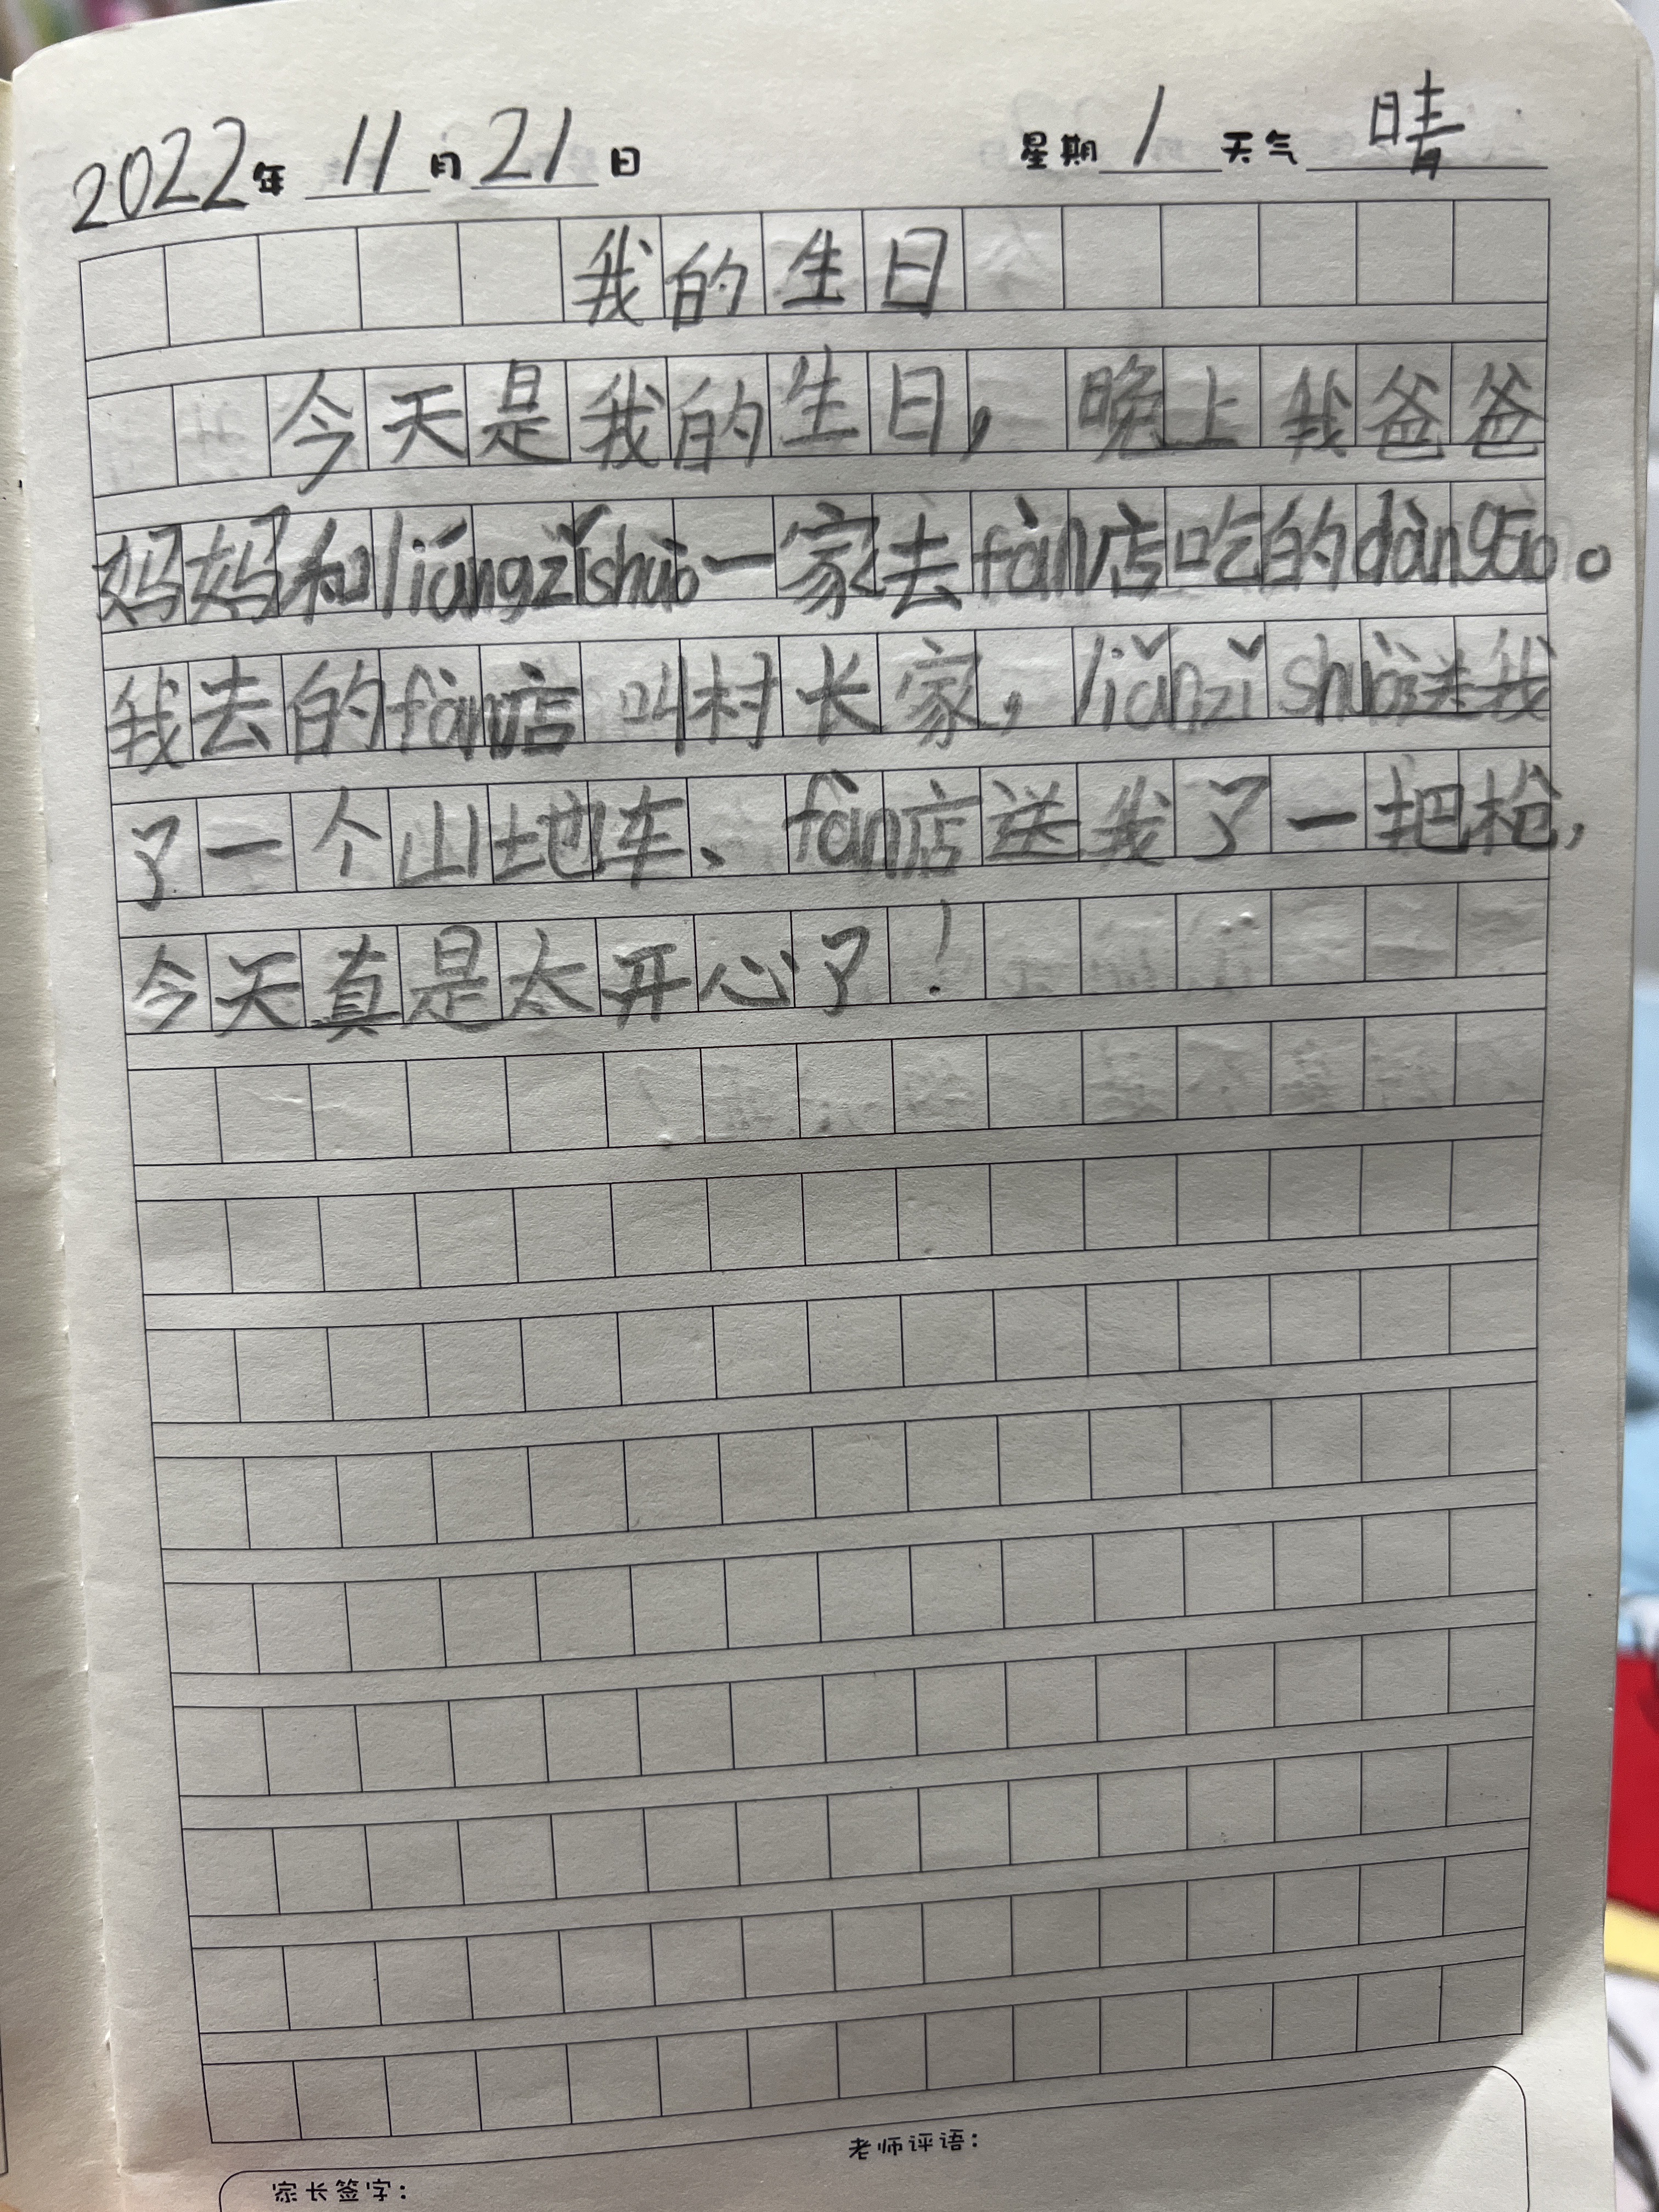 2022年 11月 21日 星期 1 天气 晴
我的生日
今天是我的生日，晚上我爸爸
妈妈和liángzǐshuò一家去fàn店吃的dàngāo。
我去的fàn店叫村长家，liǎnzǐshuò送我
了一个山地车、fàn店送我了一把枪，
今天真是太开心了！
老师评语：
家长签字：